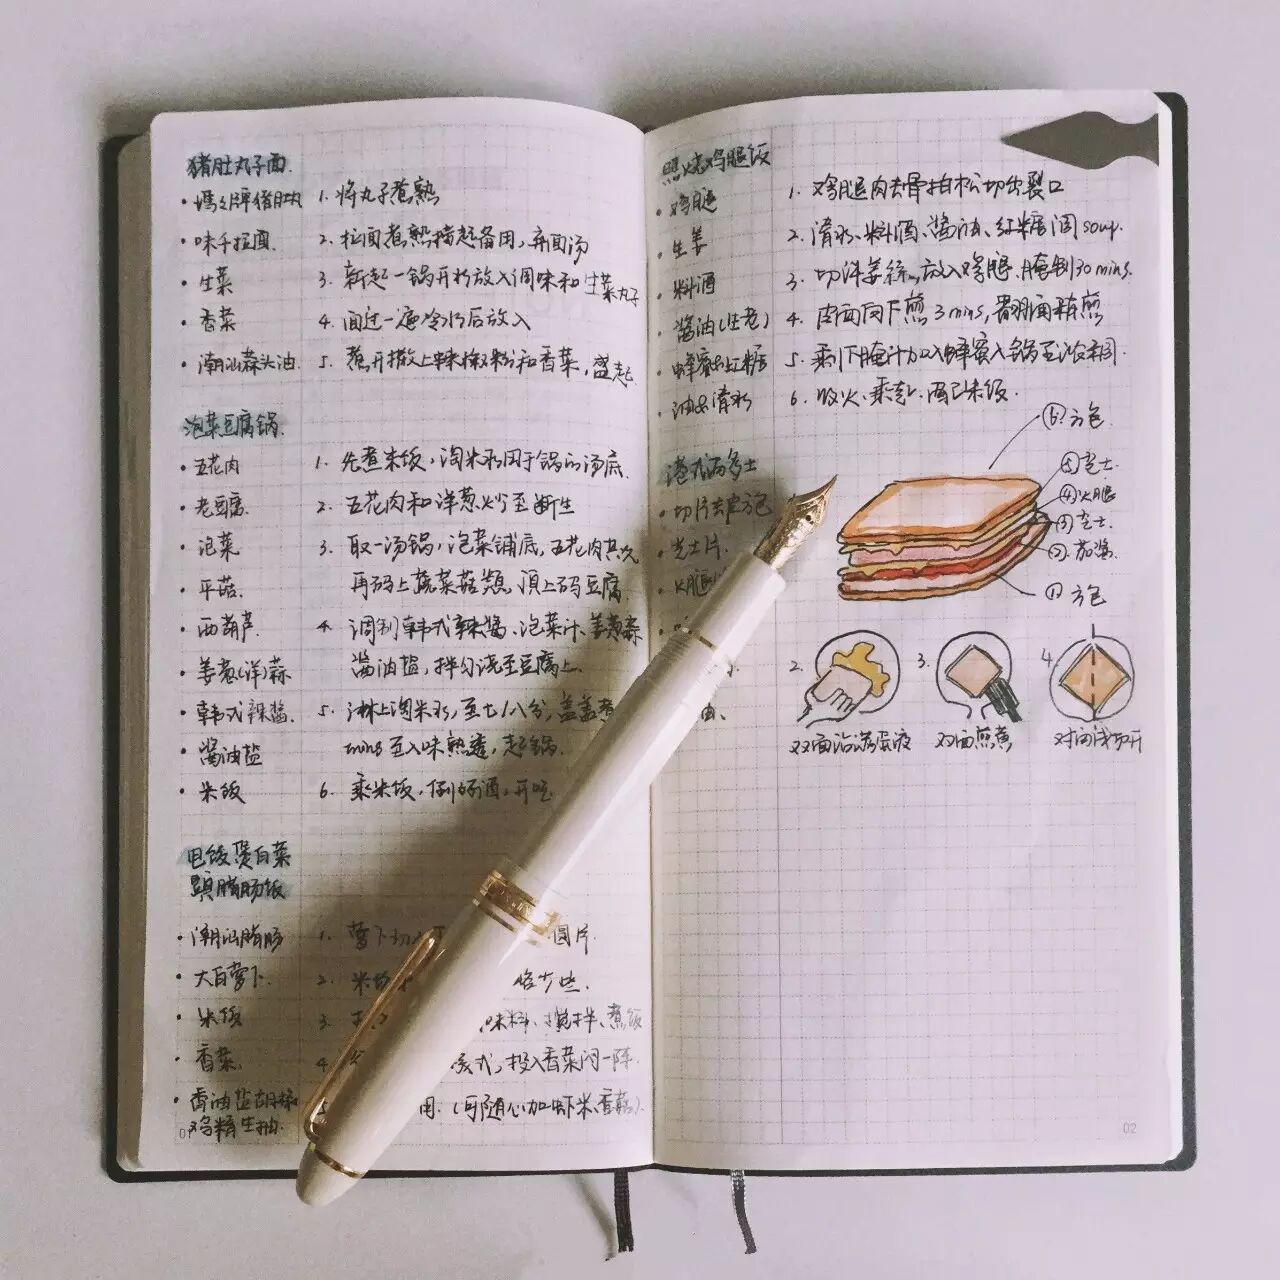 猪肚丸子面
• 妈妈牌猪肚丸
1. 将丸子煮熟
• 味千拉面
2. 拉面煮熟捞起备用，弃面汤
• 生菜
3. 新起一锅开水放入调味和生菜丸子
• 香菜
4. 面过一遍冷水后放入
• 潮汕蒜头油
5. 蒸开撒上辣椒粉和香菜，盛起
泡菜豆腐锅
• 五花肉
1. 先煮米饭，淘米水用于锅的汤底
• 老豆腐
2. 五花肉和洋葱炒至断生
• 泡菜
3. 取一汤锅，泡菜铺底，五花肉其次
• 平菇
再码上蔬菜菇类，顶上码豆腐
• 西葫芦
4. 调制韩式辣酱、泡菜汁、姜葱蒜
• 姜葱(洋)蒜
酱油盐，拌匀浇至豆腐上
• 韩式辣酱
5. 淋上淘米水，至七/八分，盖盖煮
• 酱油盐
mins至入味熟透，起锅
• 米饭
6. 乘米饭，倒好酒，开吃
电饭煲白菜
腊肠饭
• 潮汕腊肠
1. 萝卜切 圆片
• 大白萝卜
2. 米 些
• 米饭
3. 味料、搅拌、煮饭
• 香菜
4. 式，投入香菜闷一阵
• 香油盐胡椒
鸡精生抽
5. 用(可随心加虾米、香菇)
01
照烧鸡腿饭
• 鸡腿
1. 鸡腿肉去骨拍松切出裂口
• 生姜
2. 清水、料酒、酱油、红糖调soup.
• 料酒
3. 切洋姜丝、放入鸡腿、腌制30mins.
• 酱油(生老)
4. 皮面向下煎3mins，翻面再煎
• 蜂蜜&红糖
5. 剩下腌汁加入蜂蜜入锅至浓稠.
• 油&清水
6. 收火、乘起、配米饭.
港式西多士
• 切片去皮方包
• 芝士片
• 火腿
油、
⑥方包
⑤芝士
④火腿
③芝士
②茄酱
①方包
2.
3.
4.
双面沾满蛋液
双面煎黄
对角线切开
02